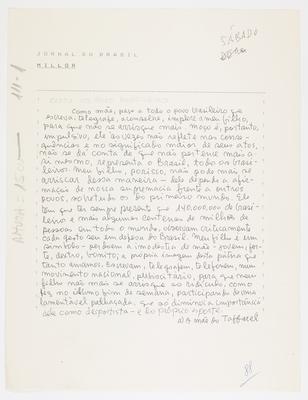 SÁBADO
JORNAL DO BRASIL
MILLÔR
Como mãe, peço a todo o povo brasileiro que
escreva, telegrafe, aconselhe, implore a meu filho,
para que não se arrisque mais. Moço e, portanto,
impulsivo, ele às vezes não reflete nas conse-
quências e no significado maior de seus atos,
não se dá conta de que não pertence mais a
si mesmo, representa o Brasil, todo os brasi-
leiros. Meu filho, por isso, não pode mais se
arriscar dessa maneira - dele depende a afir-
mação de nossa supremacia frente a outros
povos, sobretudo os do primeiro mundo. Ele
tem que ter sempre presente que 140.000.000 de brasi-
leiros e mais algumas centenas de milhões de
pessoas em todo o mundo, observam criticamente
cada gesto seu em defesa do Brasil. Meu filho é um
símbolo - perdoem a imodéstia de mãe - jovem, for-
te, dentro, bonito, a própria imagem desta pátria que
tanto amamos. Escrevam, telegrafem, telefonem, num
movimento nacional, plebiscitário, para que meu
filho não mais se arrisque ao ridículo, como
fez no último fim de semana, participando de uma
lamentável pelhaçada, que só diminui a importância
dele como desportista - e do próprio esporte.
a) A mãe do Taffarel